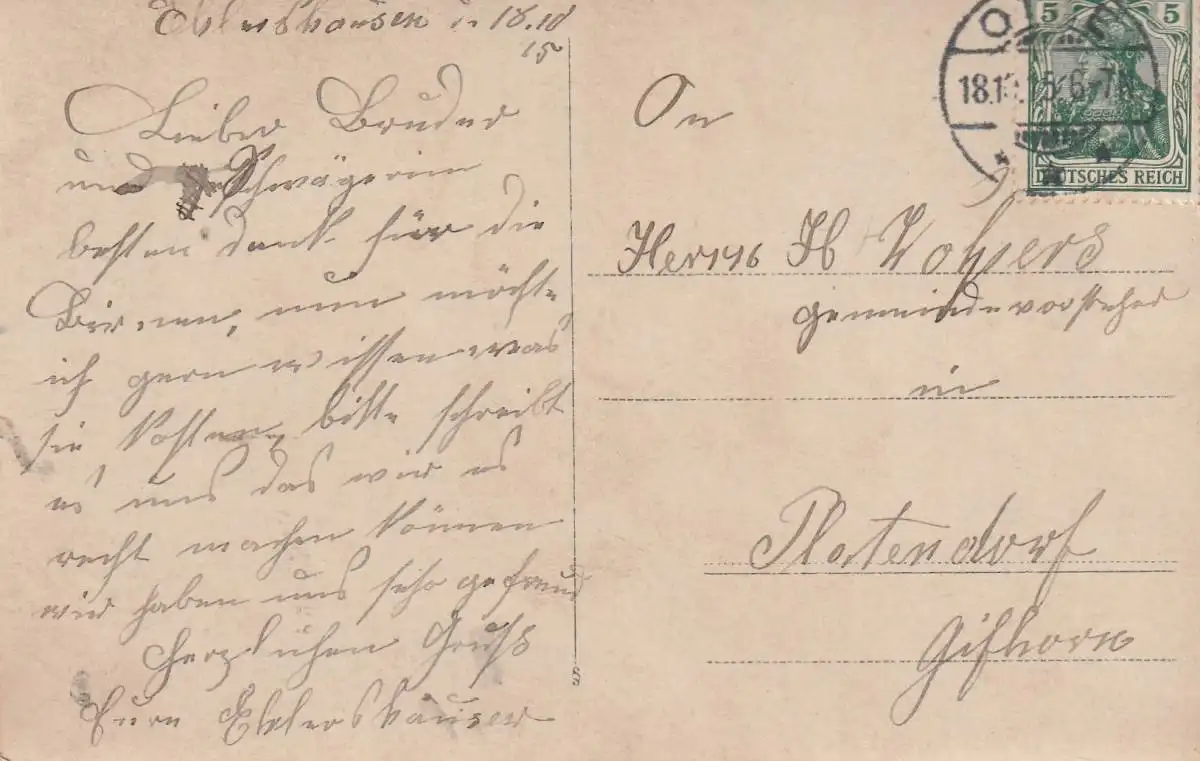 Ehlershausen d. 18.10
15
Lieber Bruder
und Schwägerin
besten dank für die
Birnen, nun möchte
ich gern wissen was
sie kosten, bitte schreibt
es uns das wir es
recht machen können
wir haben uns sehr gefreud
Herzlichen Gruß
Eure Ehlershäuser
An
Herrn H
gemeindevorsteher
in
Platendorf
Gifhorn
5 5
18.10. 5 6-7
DEUTSCHES REICH